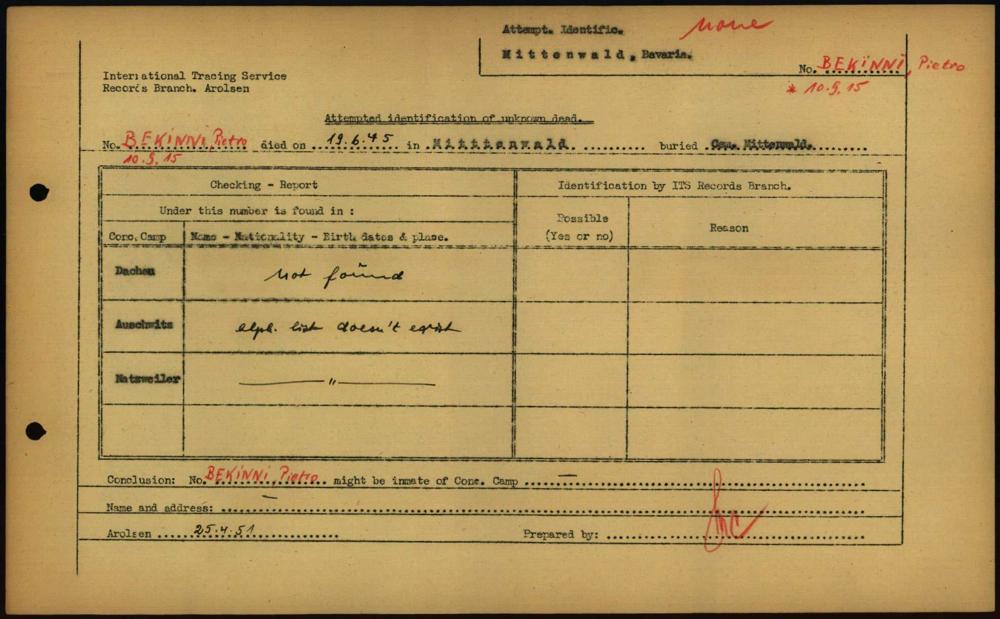 Attempt. Identific. None
Mittenwald, Bavaria.
No. BEKINNI, Pietro
* 10.9.15
International Tracing Service
Records Branch. Arolsen
Attempted identification of unknown dead.
No. BEKINNI, Pietro died on 19.6.45 in Mitttenwald buried Cem. Mittenwald.
10.9.15
Checking - Report
Identification by ITS Records Branch.
Under this number is found in :
Possible
(Yes or no)
Reason
Conc. Camp
Name - Nationality - Birth dates & place.
Dachau not found
Auschwitz alph. list doesn't exist
Natzweiler — " —
Conclusion: No. BEKINNI, Pietro might be inmate of Conc. Camp —
Name and address: —
Arolsen 25.4.51 Prepared by: